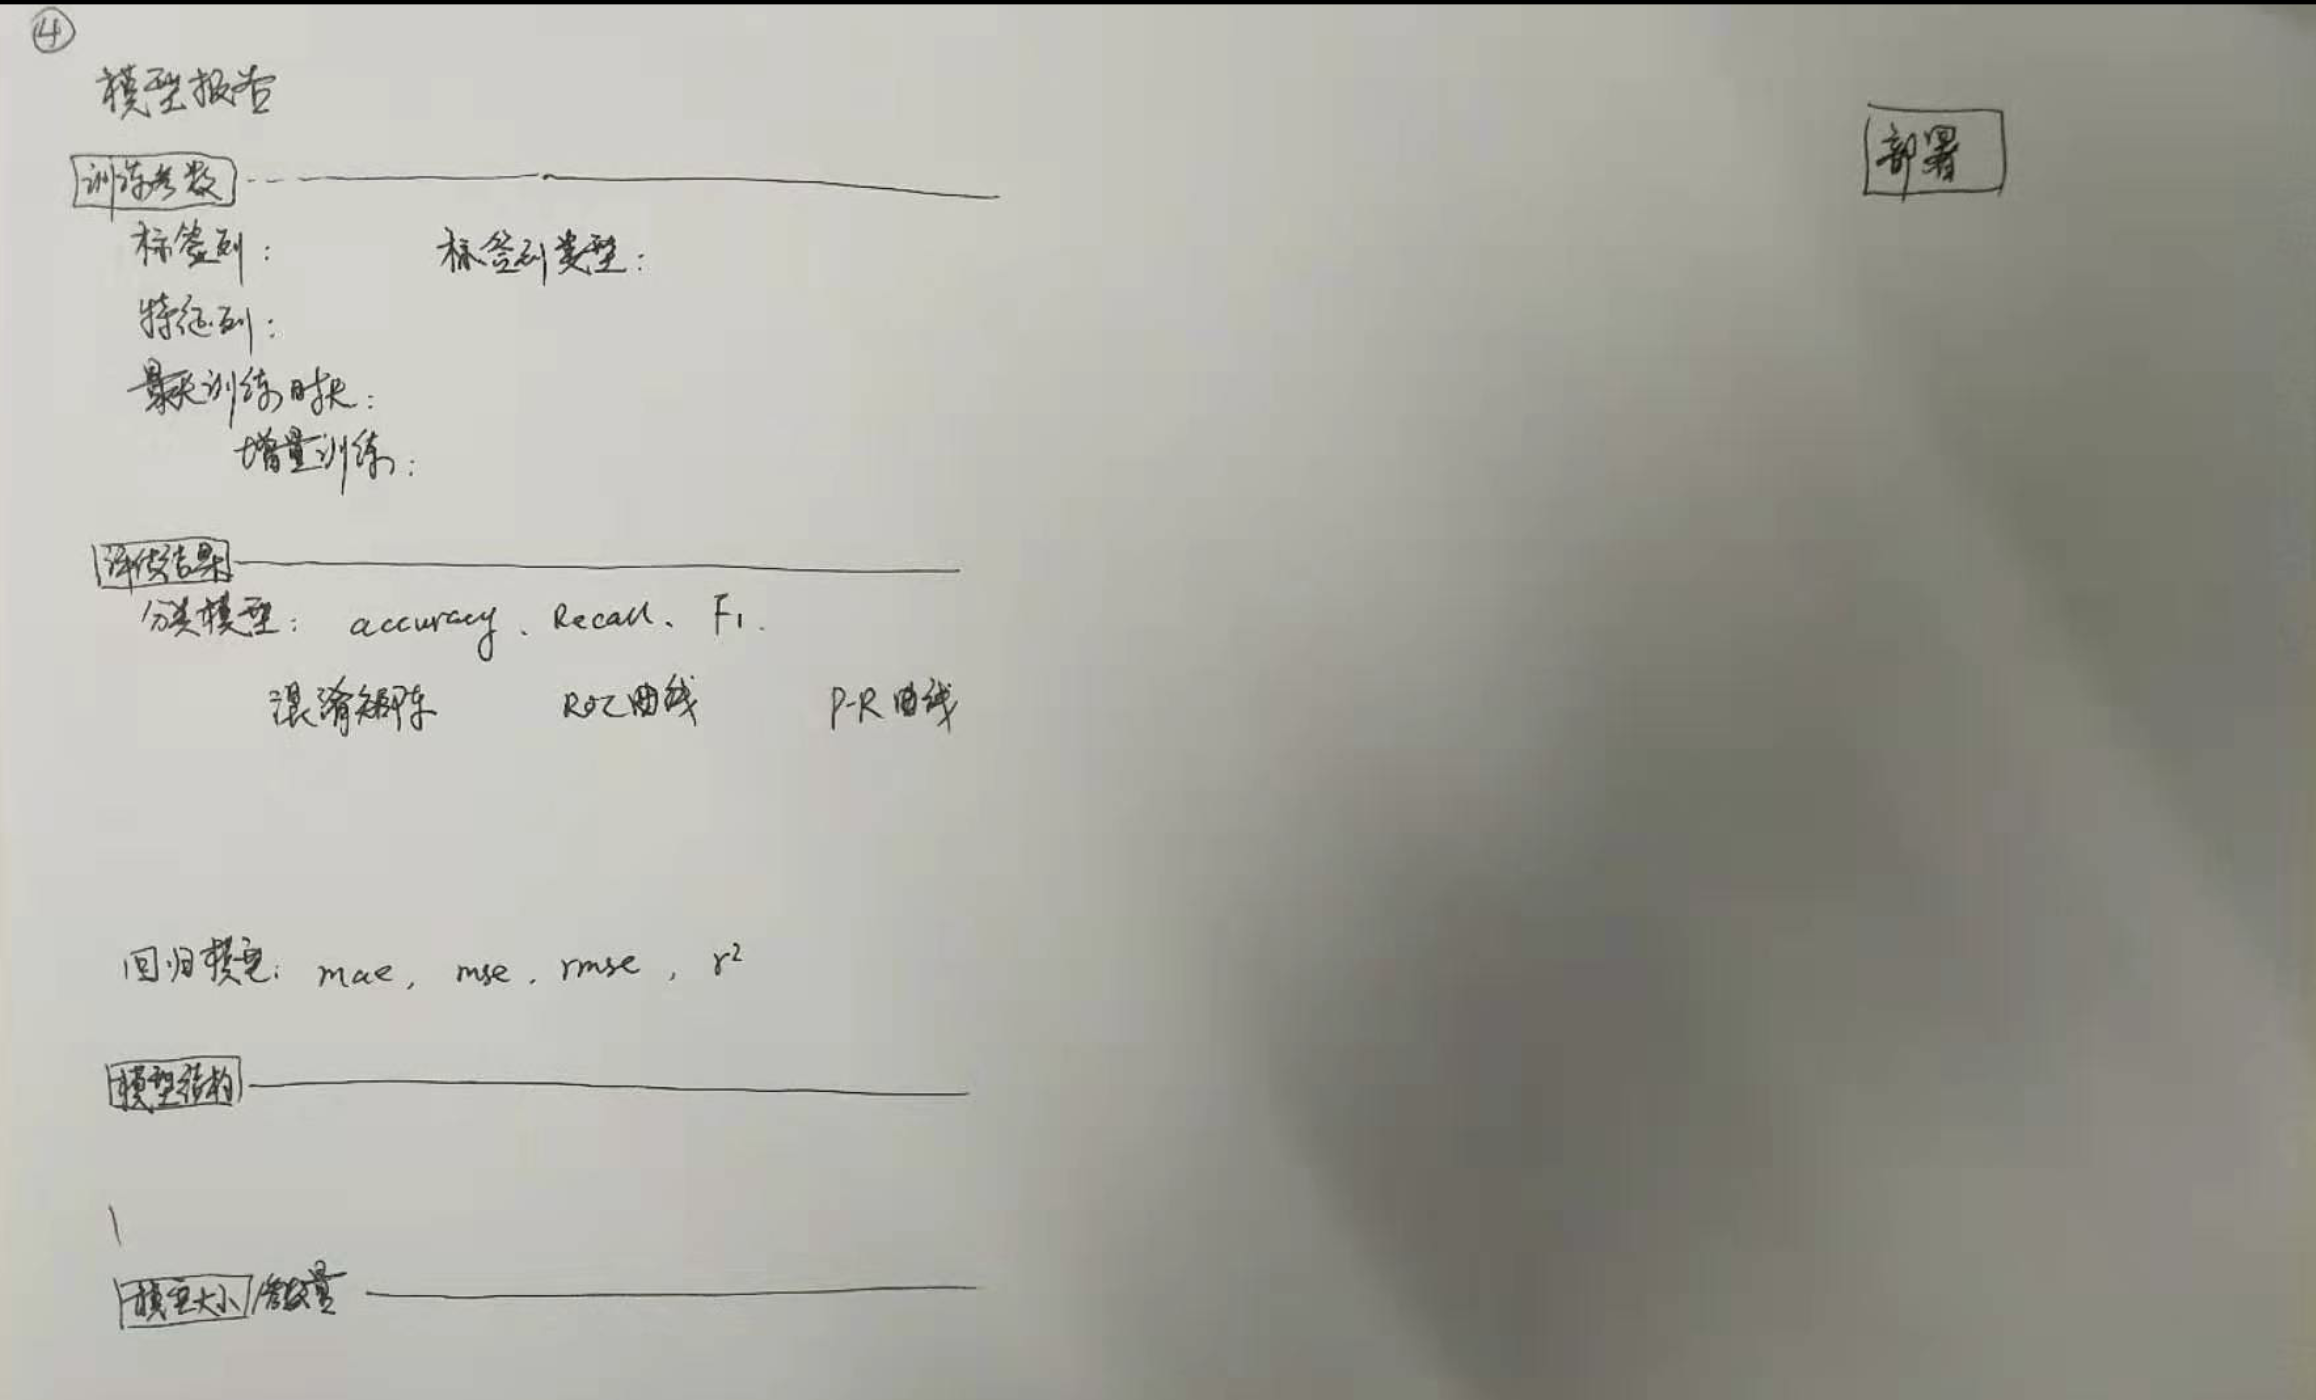 ④
模型报告
部署
训练参数
标签列： 标签列类型：
特征列：
最长训练时长：
增量训练：
评估结果
分类模型： accuracy、Recall、F1.
混淆矩阵 ROC曲线 P-R曲线
回归模型： mae, mse, rmse, r²
模型结构
模型大小/参数量